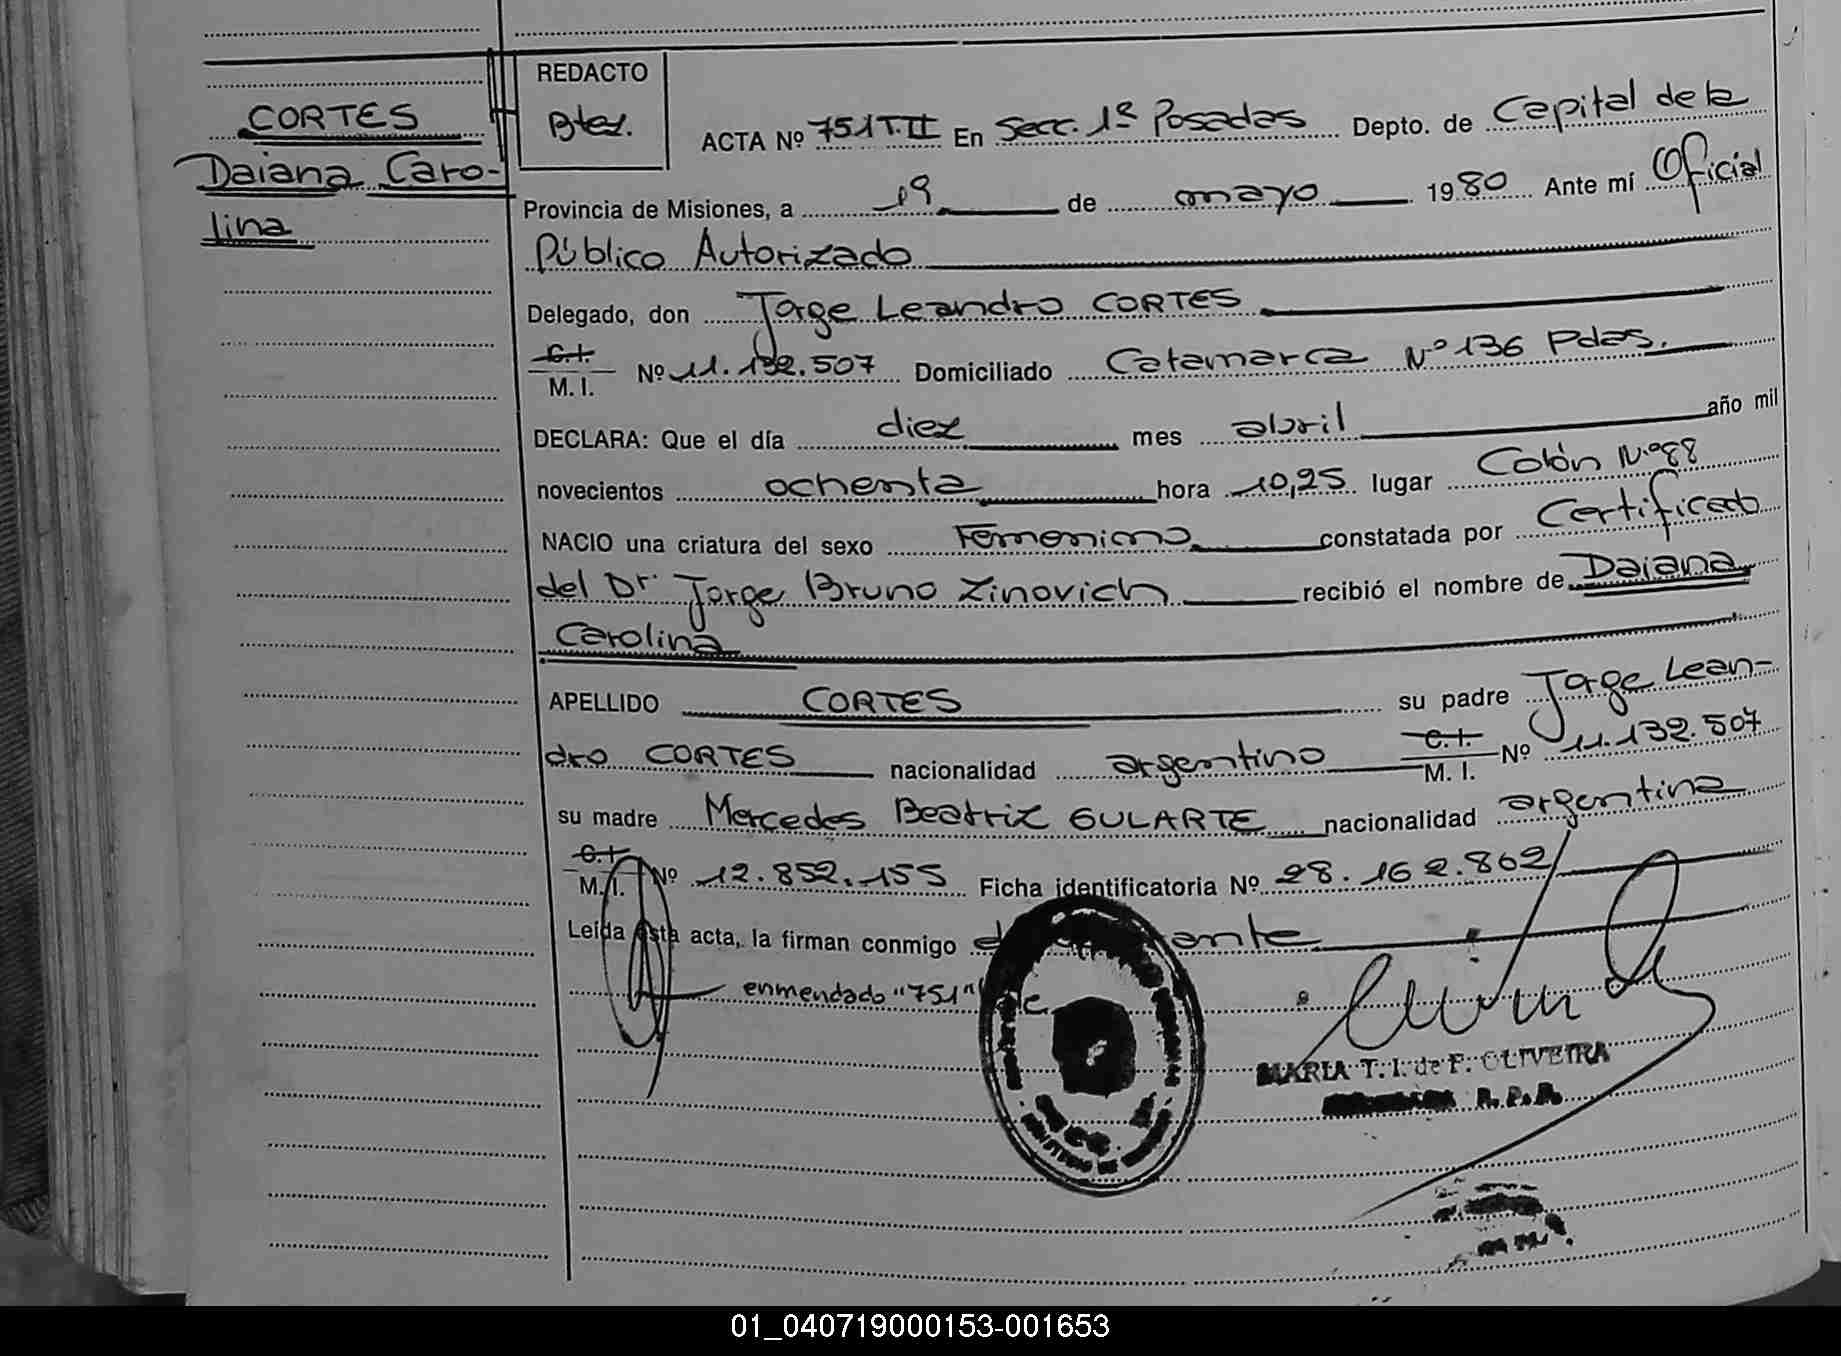 CORTES
Daiana Caro-
lina
REDACTO
Btez.
ACTA Nº 751 T.II En Secc. 1ª Posadas Depto. de Capital de la
Provincia de Misiones, a 19 de mayo 1980 Ante mí Oficial
Público Autorizado
Delegado, don Jorge Leandro CORTES
C.I.
M. I. Nº 11.132.507 Domiciliado Catamarca Nº 136 Pdas.
DECLARA: Que el día diez mes abril año mil
novecientos ochenta hora 10,25 lugar Colón N.º 88
NACIO una criatura del sexo Femenino constatada por Certificado
del Dr. Jorge Bruno Zinovich recibió el nombre de Daiana
Carolina
APELLIDO CORTES su padre Jorge Lean-
dro CORTES nacionalidad argentino C.I. M. I. Nº 11.132.507
su madre Mercedes Beatriz GULARTE nacionalidad argentina
C.I.
M. I. Nº 12.852.155 Ficha identificatoria Nº 28.162.862
Leída esta acta, la firman conmigo
enmendado "751"
MARIA T. I. de F. OLIVEIRA
R.P.P.
01_040719000153-001653